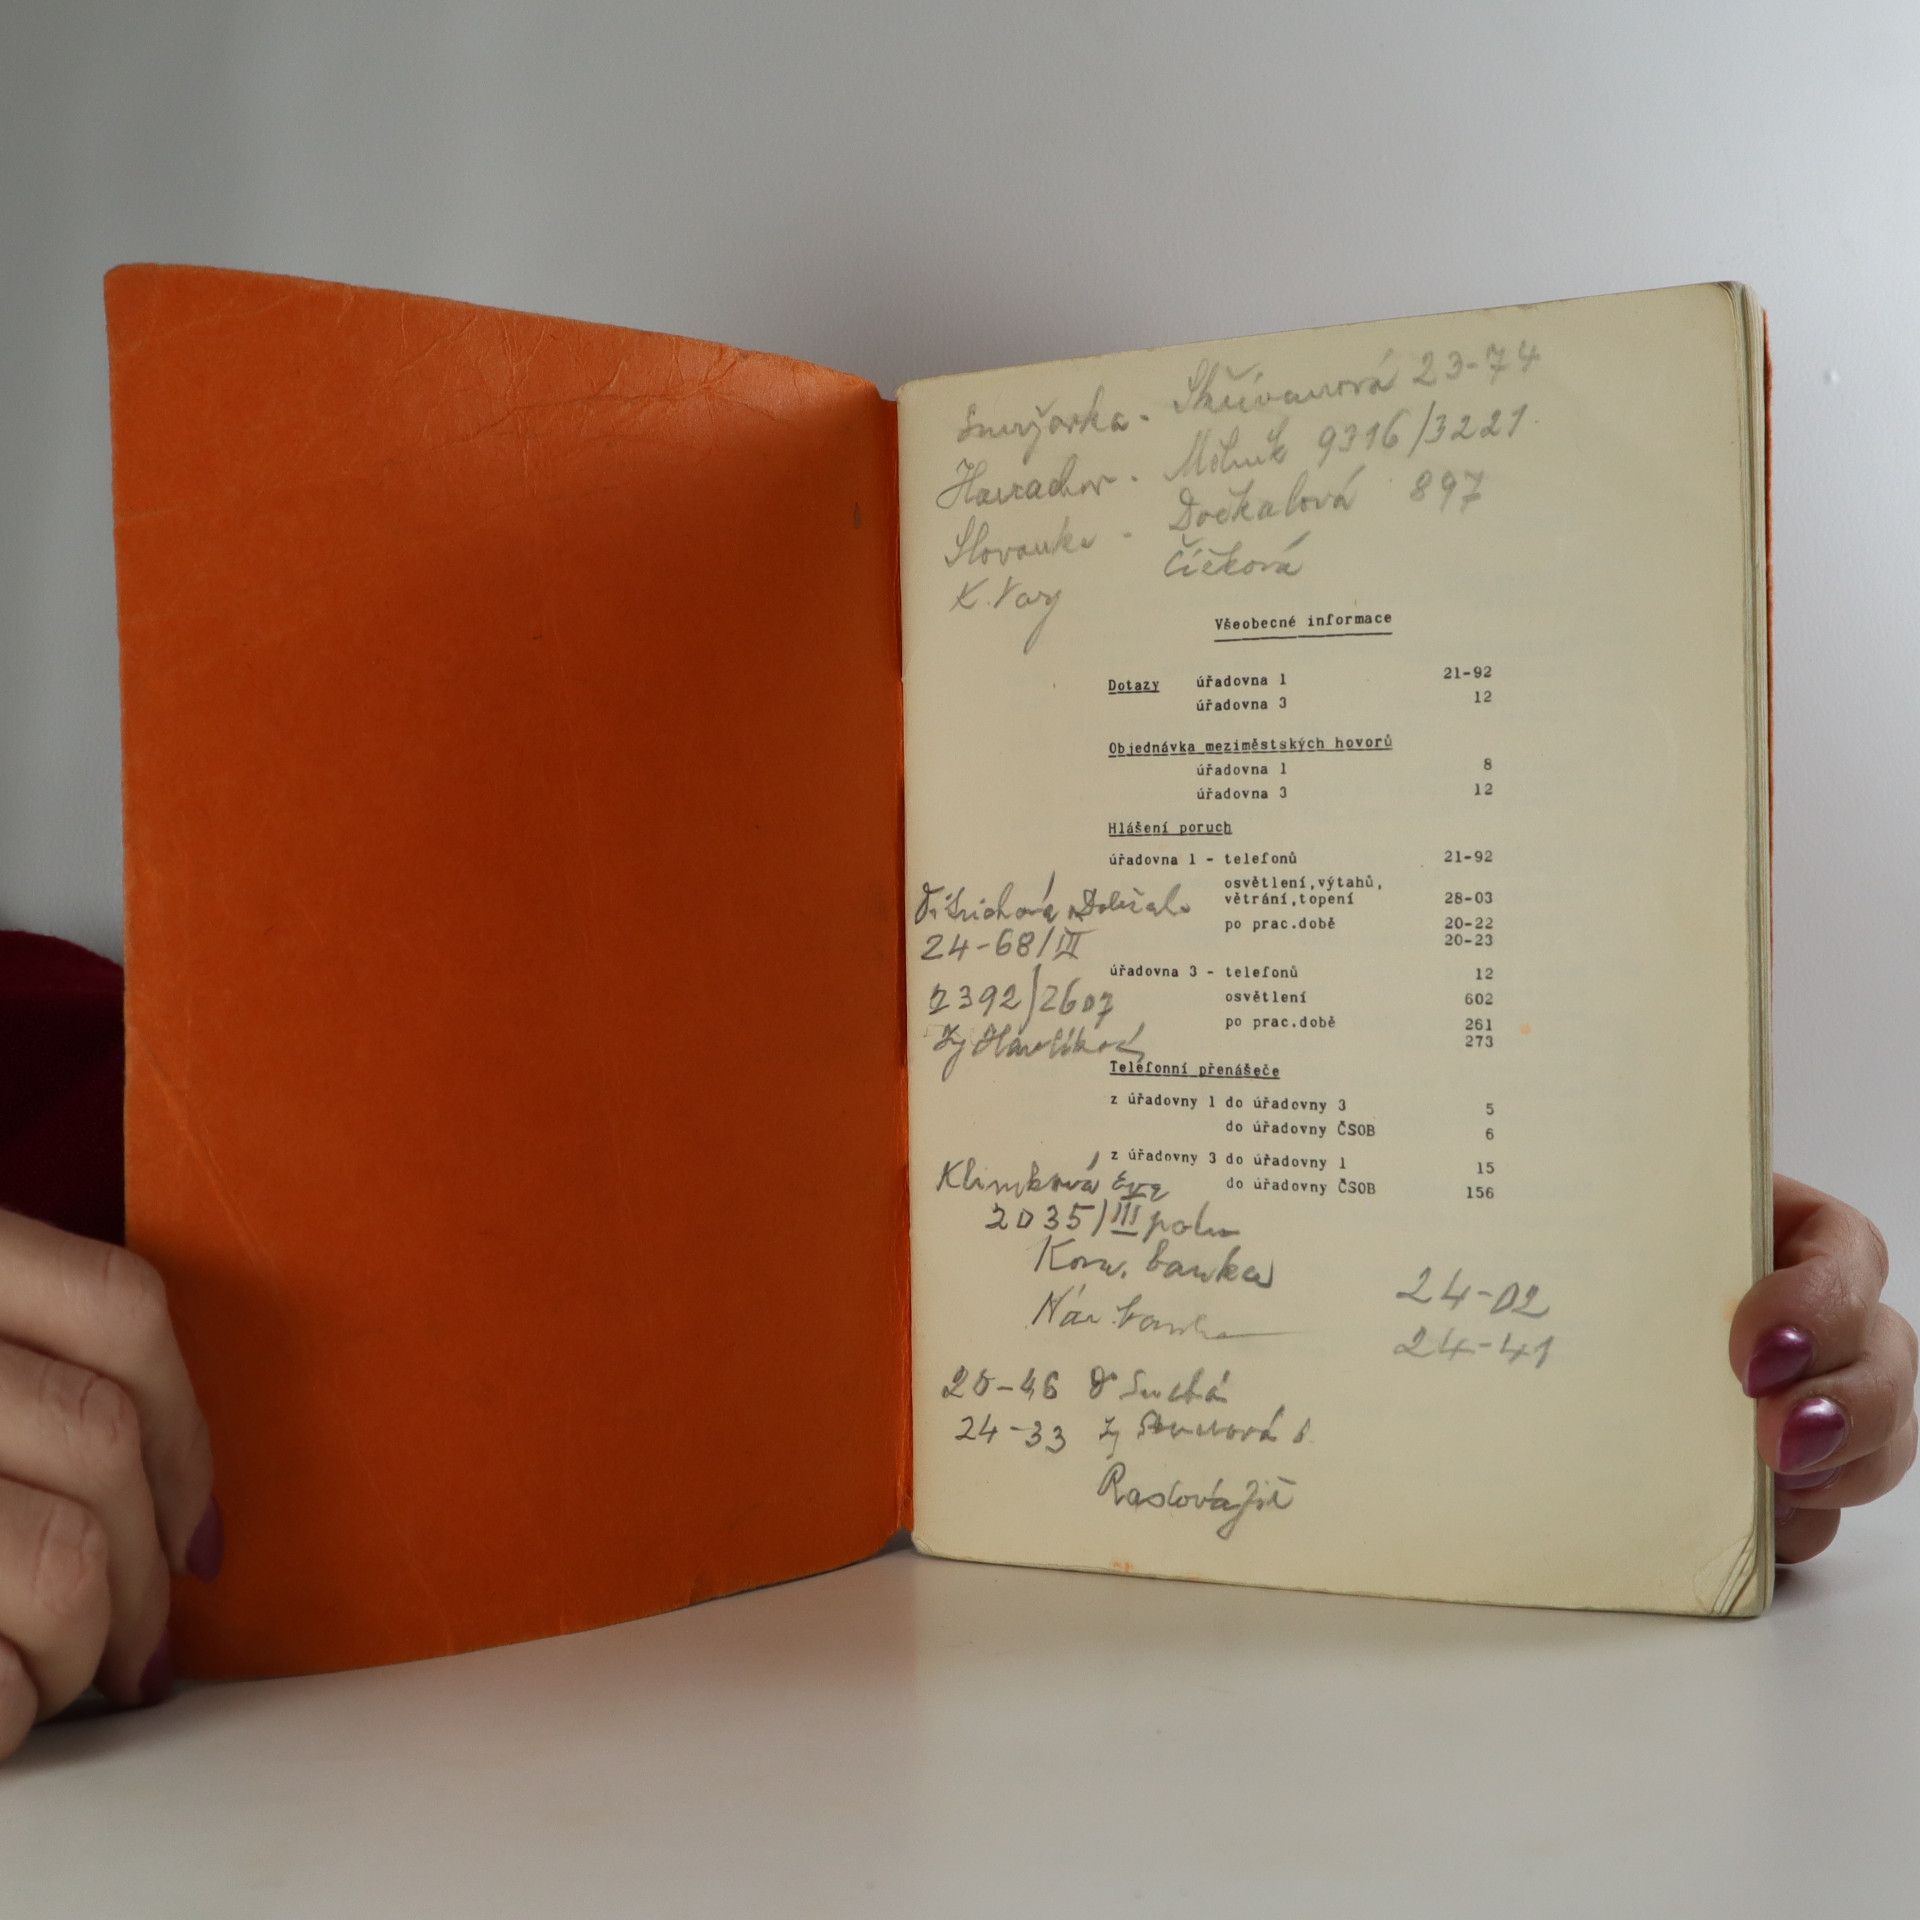 Skřivanová 23-74
Harrachov - Mělník 9316/3221
Slovanka - Dočkalová 897
K. Vary Čížková
Všeobecné informace
Dotazy úřadovna 1 21-92
úřadovna 3 12
Objednávka meziměstských hovorů
úřadovna 1 8
úřadovna 3 12
Hlášení poruch
úřadovna 1 - telefonů 21-92
osvětlení,výtahů,
větrání,topení 28-03
po prac.době 20-22
20-23
24-68/III
úřadovna 3 - telefonů 12
osvětlení 602
po prac.době 261
273
2392/2607
Telefonní přenášeče
z úřadovny 1 do úřadovny 3 5
do úřadovny ČSOB 6
z úřadovny 3 do úřadovny 1 15
do úřadovny ČSOB 156
Klimková Eva
2035/III
Kom. banka 24-02
24-41
20-46 Dr Suchá
24-33